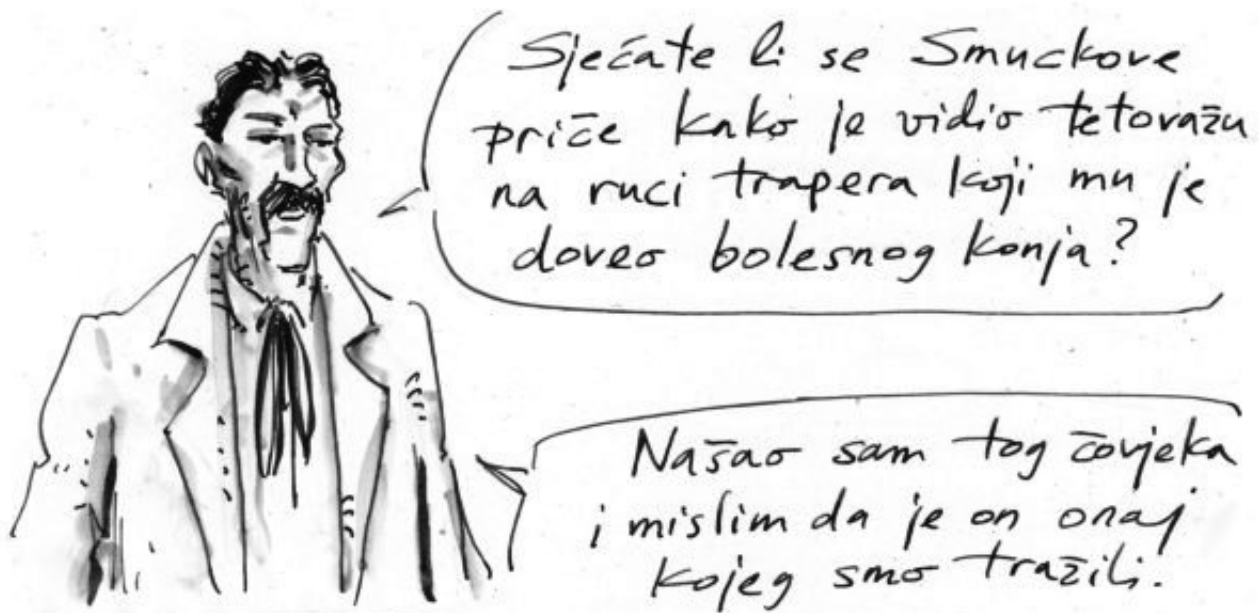 Sjećate li se Smuckove
priče kako je vidio tetovažu
na ruci trapera koji mu je
doveo bolesnog konja?
Našao sam tog čovjeka
i mislim da je on onaj
kojeg smo tražili.